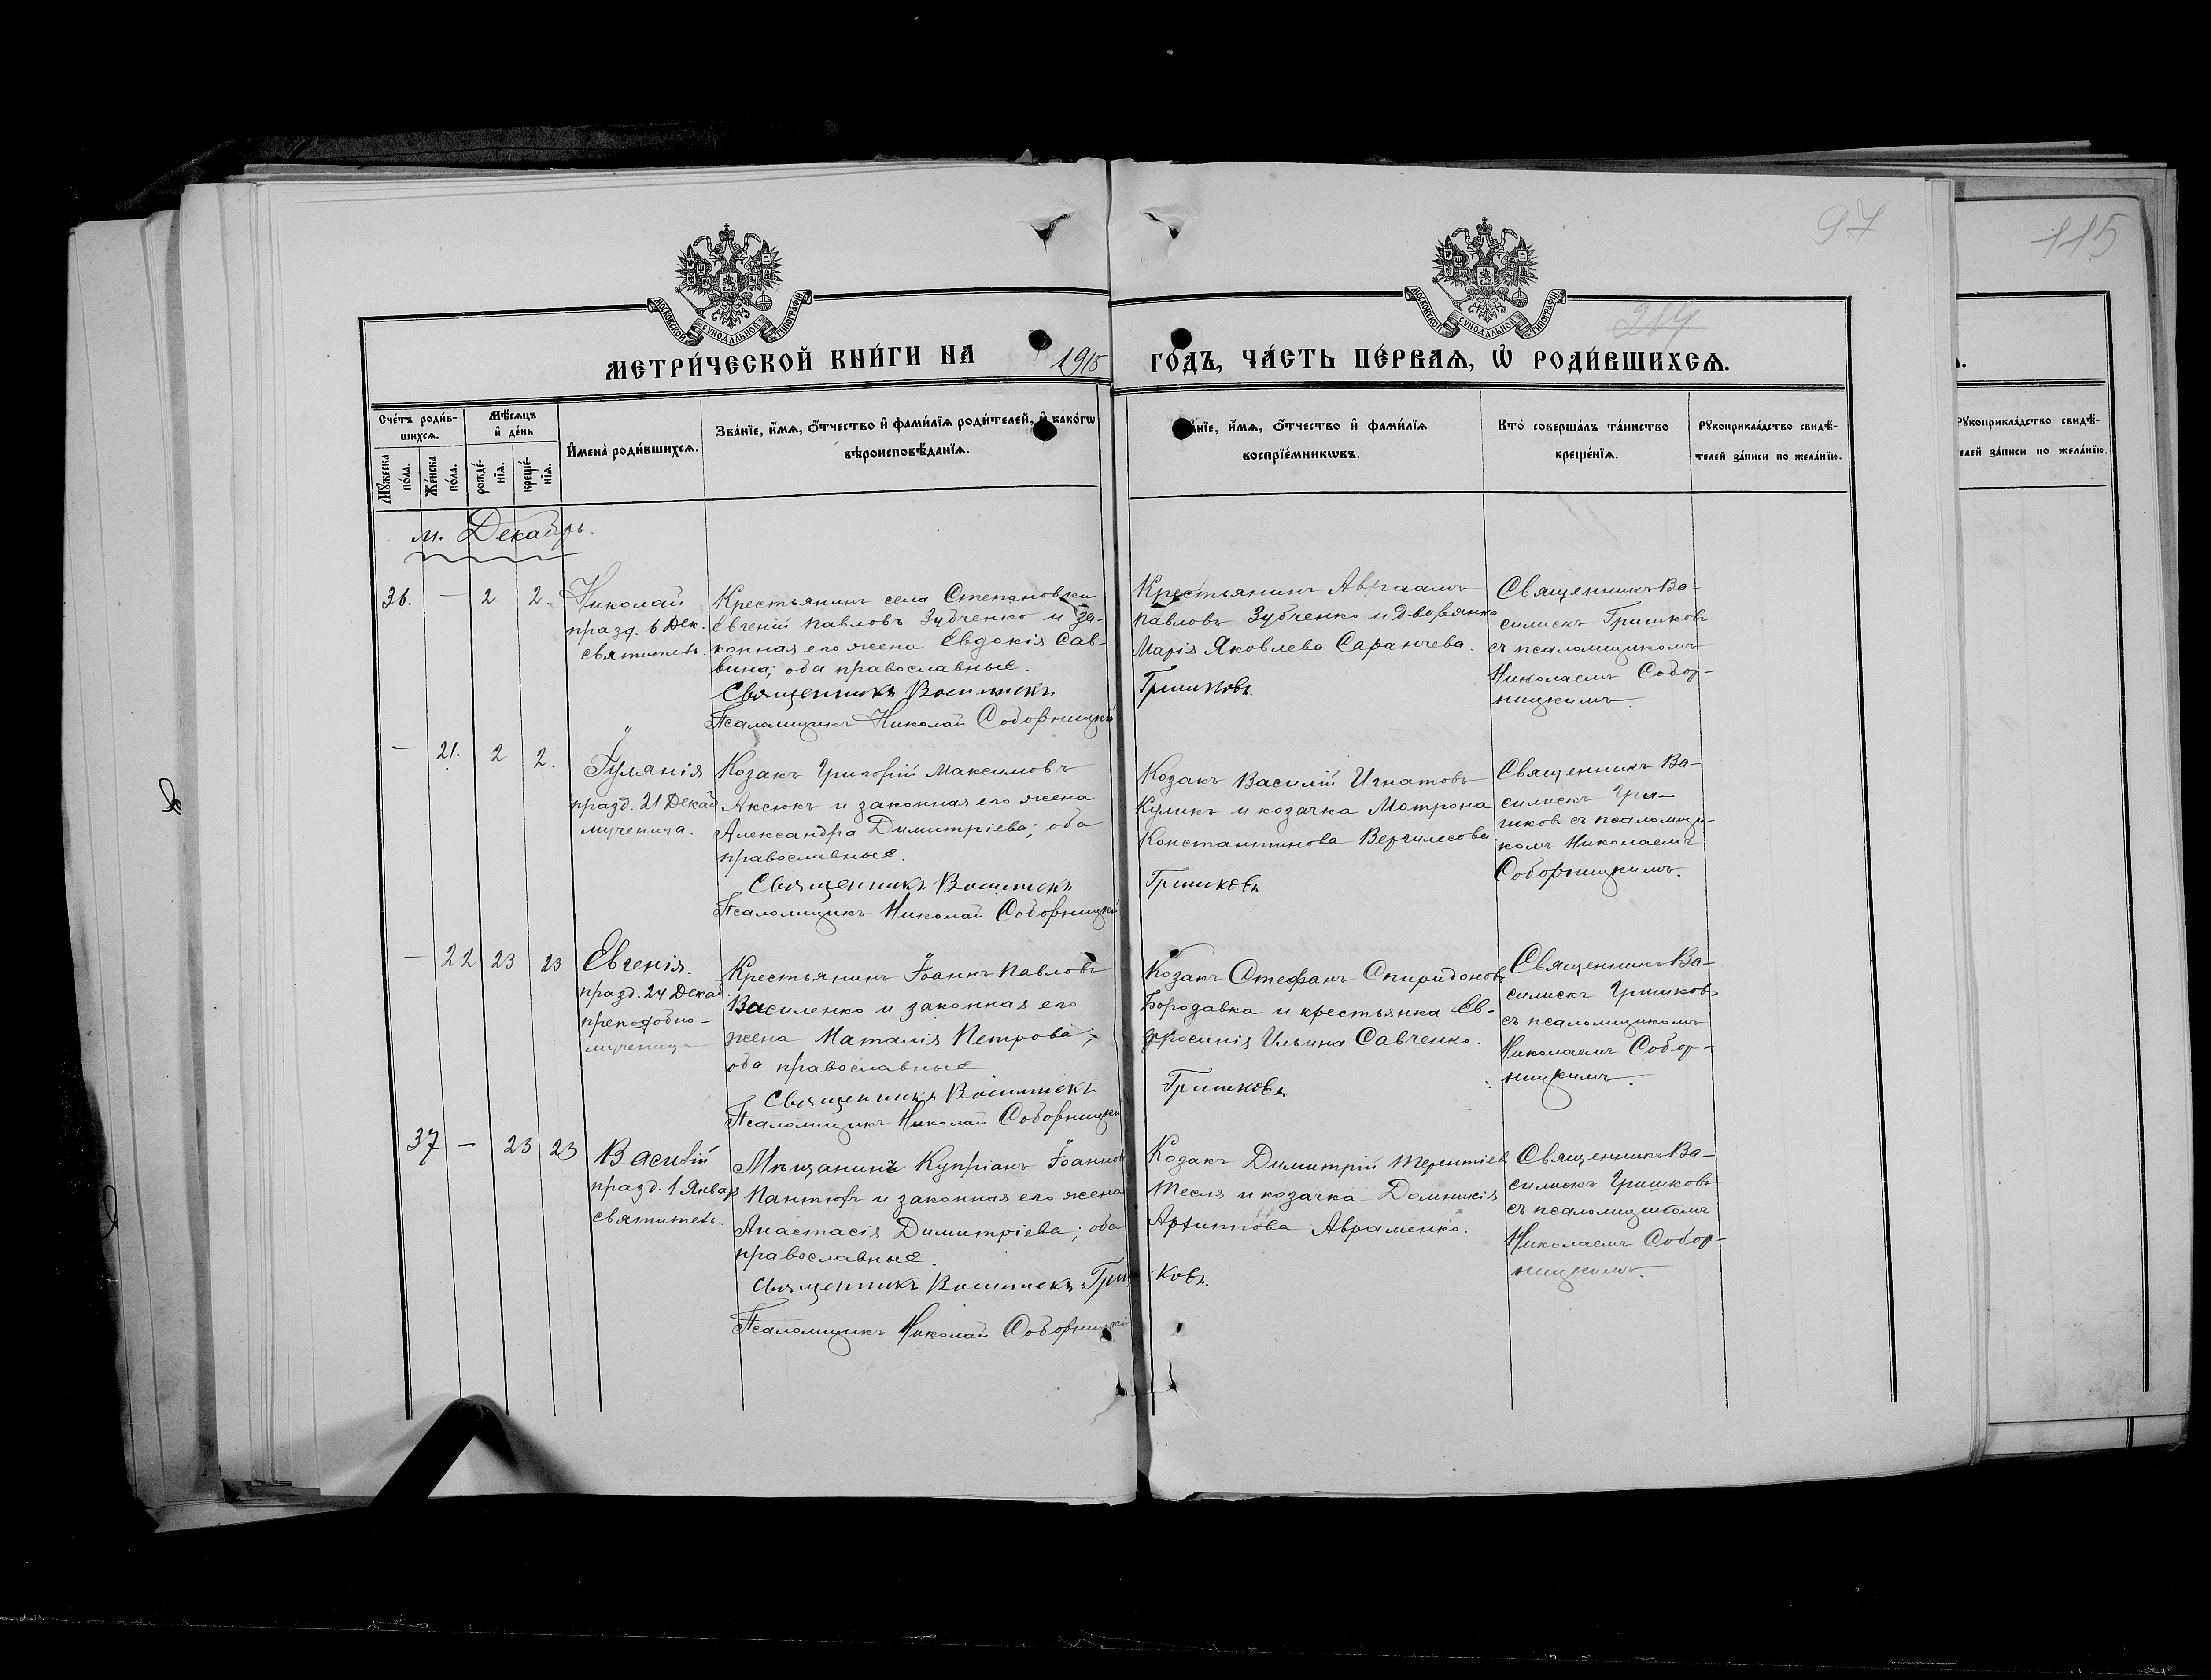 97
115
МОСКОВСКОЙ СУНОДАЛЬНОЙ ТИПОГРАФІИ
МОСКОВСКОЙ СУНОДАЛЬНОЙ ТИПОГРАФІИ
МЕТРИ́ЧЕСКОЙ КНИ́ГИ НА 1915 ГО́ДЪ, ЧА́СТЬ ПЕ́РВАѦ, Ѡ РОДИ́ВШИХСѦ.
Сче́тъ роди́в-
шихсѧ.
Мѣ́сѧцъ
и҆ де́нь
Мꙋ́жеска
по́ла.
Же́нска
по́ла.
рожде́-
нїѧ.
креще́-
нїѧ.
И҆мена̀ роди́вшихсѧ.
Зва́нїе, и҆́мѧ, ѻ҆́тчество и҆ фами́лїѧ роди́телей, и҆ како́гѡ
вѣроисповѣ́данїѧ.
и҆́мѧ, ѻ҆́тчество и҆ фами́лїѧ
воспрїе́мникѡвъ.
Кто̀ соверша́лъ та́инство
креще́нїѧ.
Рꙋкоприкла́дство свидѣ́-
телей за́писи по жела́нїю.
Рꙋкоприкла́дство свидѣ́-
елей за́писи по жела́нїю.
м. Декабрь.
36. — 2 2.
Николай
празд. 6 Дек.
святитель.
Крестьянинъ села Степановки
Евгеній Павловъ Зубченко и за-
конная его жена Евдокія Сав-
вина; оба православные.
Священникъ Василискъ
Псаломщикъ Николай Соборницкій
Крестьянинъ Авраамъ
Павловъ Зубченко и дворянка
Марія Яковлева Саранчева.
Гришковъ
Священникъ Ва-
силискъ Гришковъ
съ псаломщикомъ
Николаемъ Собор-
ницкимъ.
— 21. 2 2.
Іуліанія
празд. 21 Декаб
мученица.
Козакъ Григорій Максимовъ
Аксюкъ и законная его жена
Александра Димитріева; оба
православные.
Священникъ Василискъ
Псаломщикъ Николай Соборницкій
Козакъ Василій Игнатовъ
Куликъ и козачка Мотрона
Константинова
Гришковъ
Священникъ Ва-
силискъ Гри-
шковъ съ псаломщи-
комъ Николаемъ
Соборницкимъ.
— 22 23 23
Евгенія.
празд. 24 Декаб
преподобно-
мученица
Крестьянинъ Іоаннъ Павловъ
Василенко и законная его
жена Наталія Петрова;
оба православные
Священникъ Василискъ
Псаломщикъ Николай Соборницкій
Козакъ Стефанъ Спиридоновъ
Бородавка и крестьянка Ев-
фросинія Ильина Савченко.
Гришковъ
Священникъ Ва-
силискъ Гришковъ
съ псаломщикомъ
Николаемъ Собор-
ницкимъ.
37 — 23 23
Василій
празд. 1 Январ
святитель.
Мѣщанинъ Купріанъ Іоаннов
Пантюхъ и законная его жена
Анастасія Димитріева; оба
православные.
Священникъ Василискъ Гриш
Псаломщикъ Николай Соборницкій
Козакъ Димитрій Терентіев
Тесля и козачка Домникія
Архиппова Авраменко.
ковъ.
Священникъ Ва-
силискъ Гришковъ
съ псаломщикомъ
Николаемъ Собор-
ницкимъ.